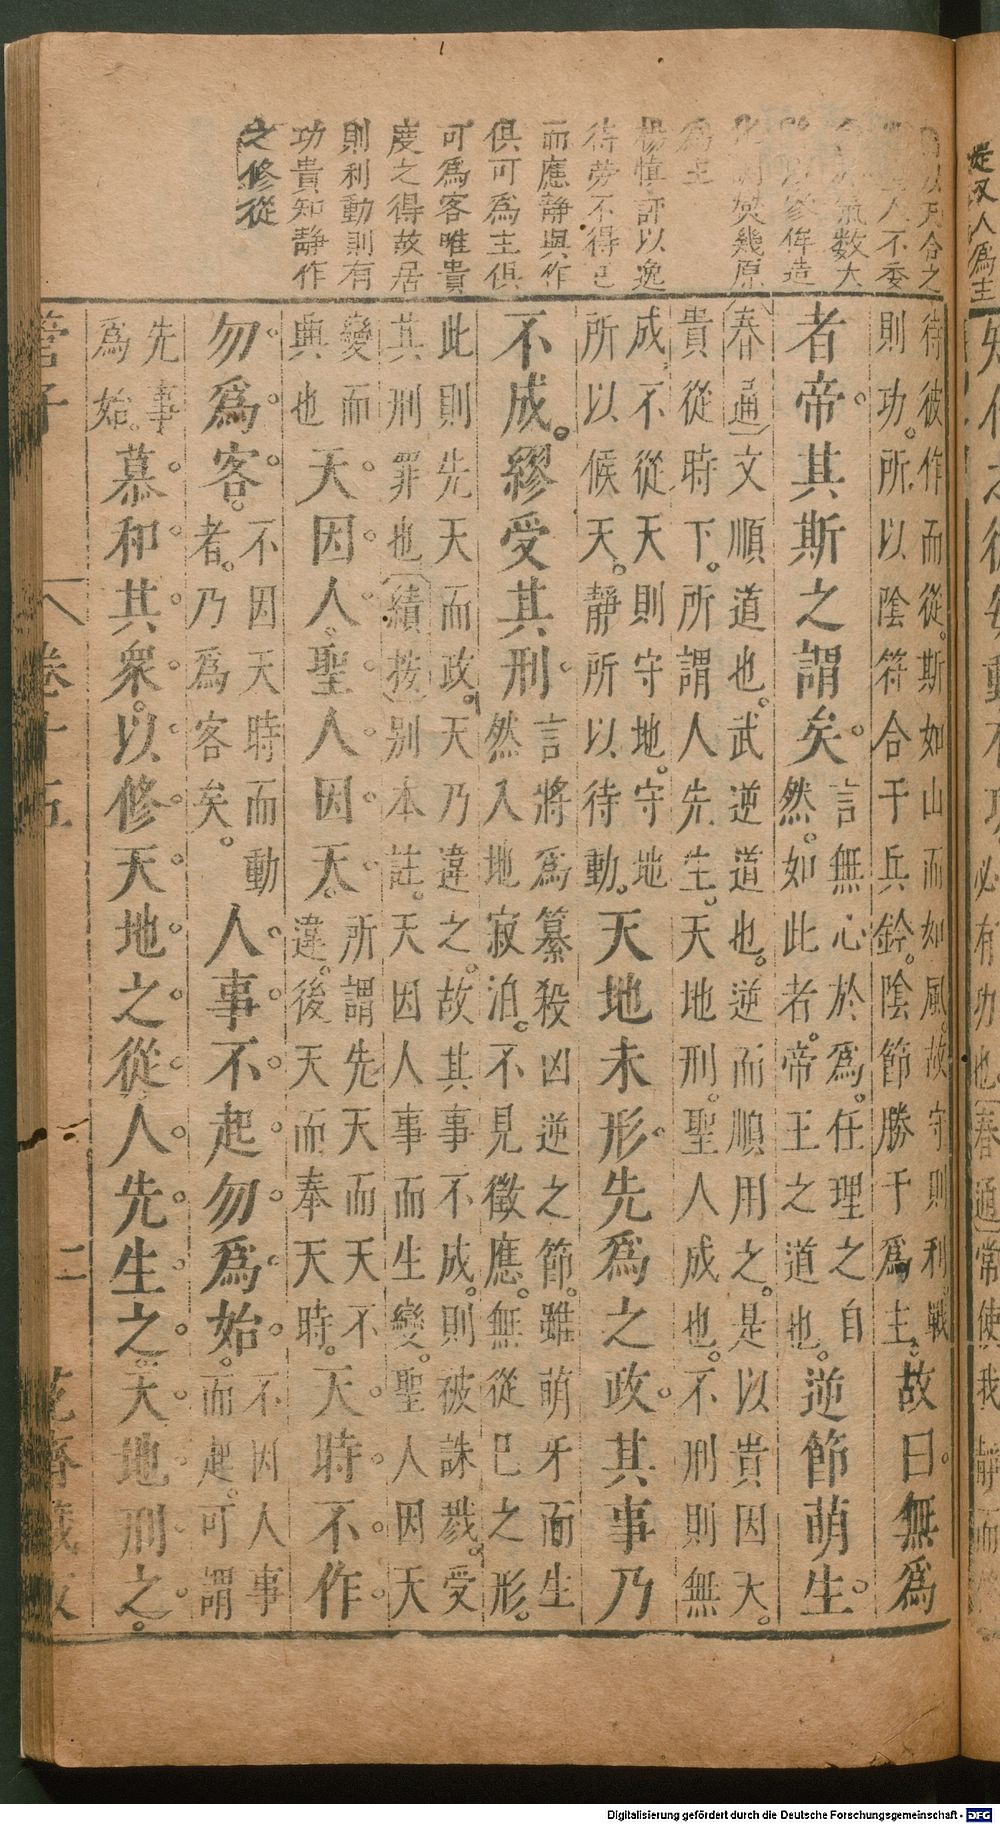 從以人爲主
必有功也春通常使我靜而
以天合之
人不委
氣数大
以參侔造
幾原
爲主
楊慎評以逸
待劳不得已
而應静與作
俱可爲主俱
可爲客唯貴
度之得故居
則利動則有
功貴知静作
之修從
待彼作而從。斯如山而如風。故守則利戰
則功。所以陰符合于兵鈐。陰節勝于爲主。
故曰無爲
者帝其斯之謂矣。
言無心於爲。任理之自
然。如此者。帝王之道也。
逆節萌生。
春通文順道也。武逆道也。逆而順用之。是以貴因大。
貴從時下。所謂人先生。天地刑。聖人成也。不刑則無
成。不從天則守地。守地
所以候天。靜所以待動。
天地未形先爲之政其事乃
不成。繆受其刑。
言將爲篡殺凶逆之節。雖萌牙而生
然入地寂泊。不見徵應。無從巳之形。
此則先天而政。天乃違之。故其事不成。則被誅戮。受
其刑罪也績按別本註。天因人事而生變。聖人因天
變而
與也
天因人。聖人因天。
所謂先天而天不
違。後天而奉天時。
天時不作
勿爲客。
不因天時而動
者。乃爲客矣。
人事不起勿爲始。
不因人事
而起。可謂
先事
爲始。
慕和其衆。以修天地之從人先生之。天地刑之。
管子 卷十五 二 花齋藏板
Digitalisierung gefördert durch die Deutsche Forschungsgemeinschaft - DFG